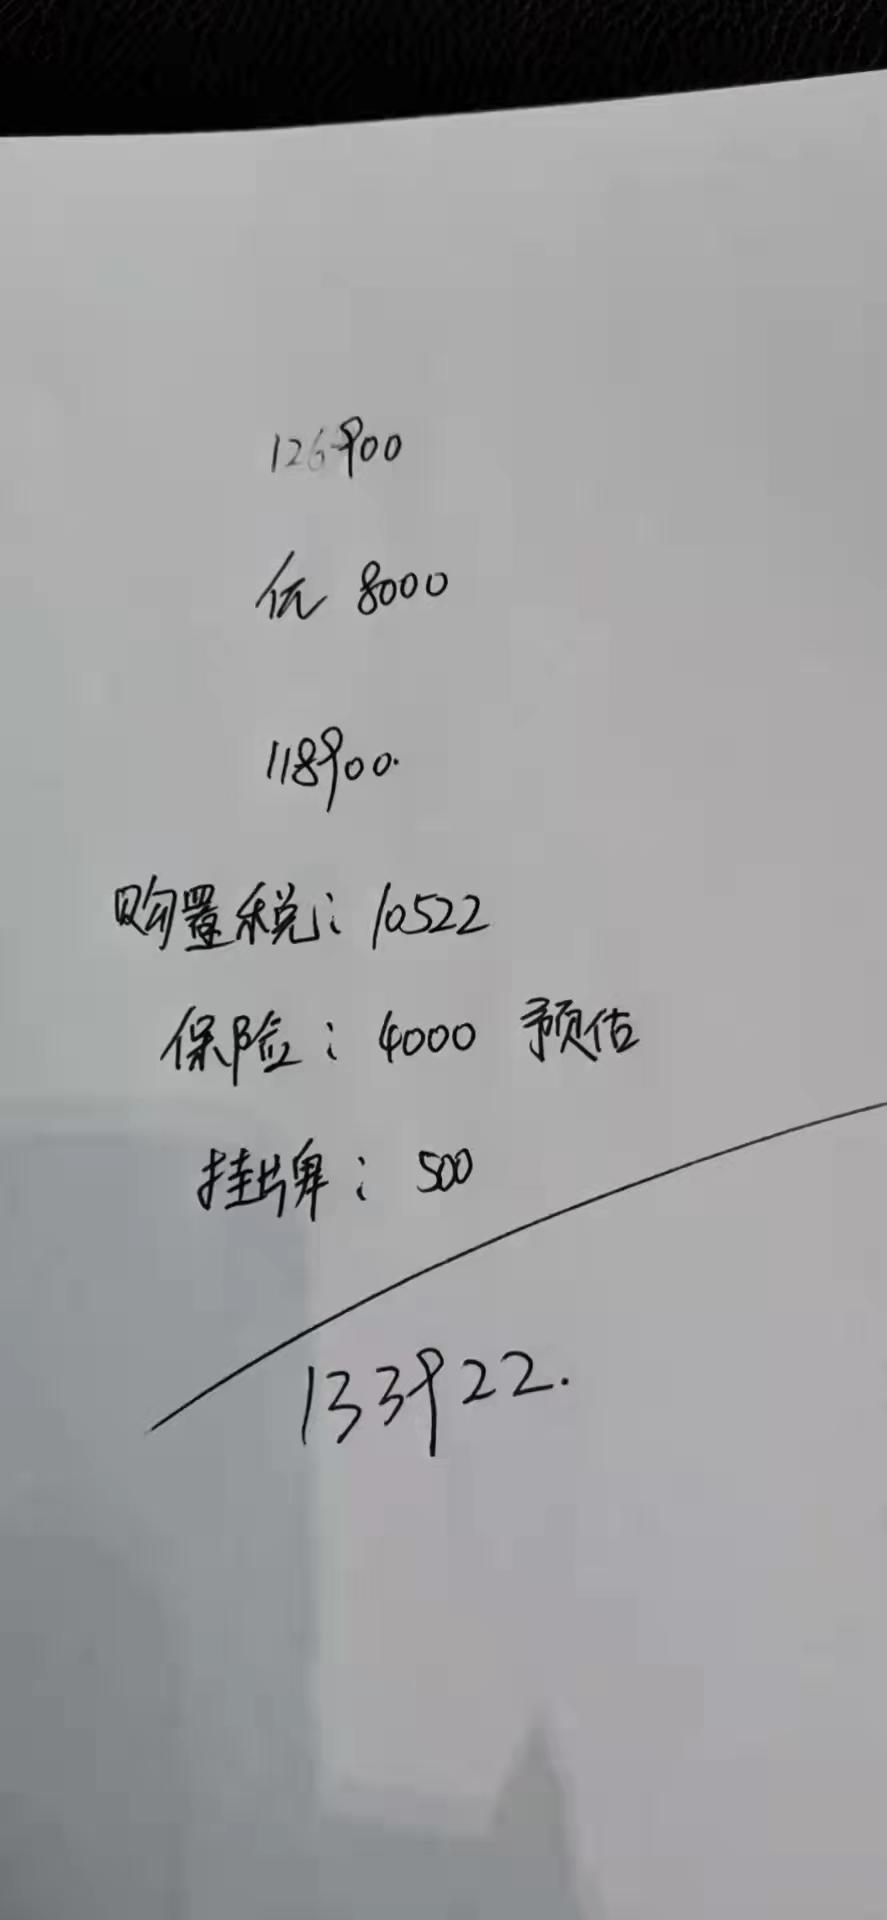 126900
优 8000
118900.
购置税: 10522
保险: 4000 预估
挂牌: 500
133922.